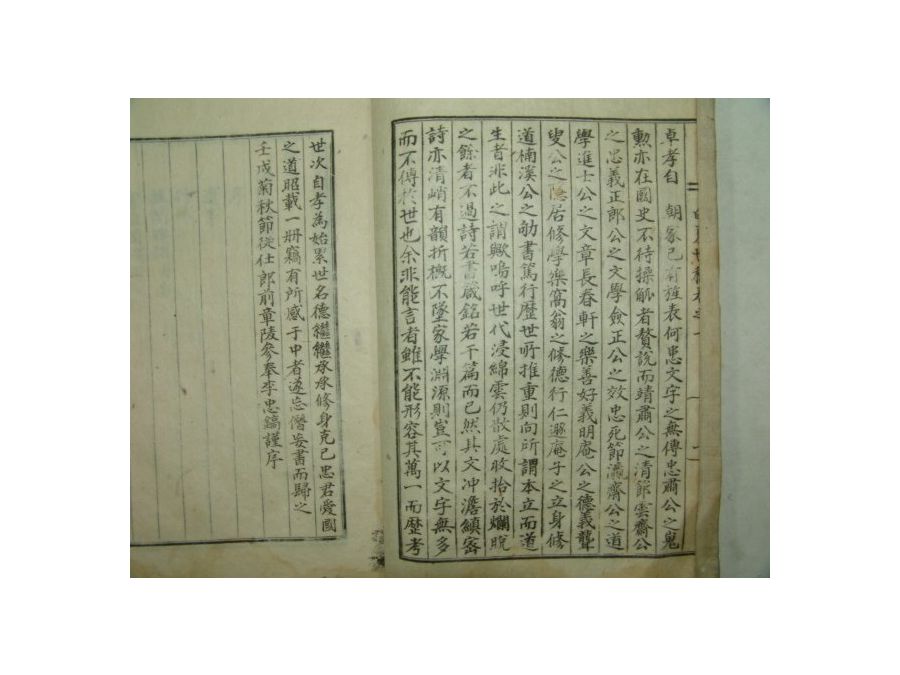 卓孝自　朝家已有旌表何患文字之無傳忠肅公之鬼
勲亦在國史不待操觚者贅說而靖肅公之清節雲齋公
之忠義正郎公之文學僉正公之效忠死節瀛齋公之道
學進士公之文章長春軒之樂善好義明庵公之德義聾
叟公之隠居修學樂窩翁之修德行仁遯庵子之立身修
道楠溪公之劬書篤行歷世所推重則向所謂本立而道
生者非此之謂歟嗚呼世代浸綿雲仍散處收拾於爛脫
之餘者不過詩若書箴銘若干篇而已然其文冲澹縝密
詩亦清峭有韻折槪不墜家學淵源則豈可以文字無多
而不傳於世也余非能言者雖不能形容其萬一而歷考
世次自孝為始累世名德繼繼承承修身克己忠君愛國
之道昭載一冊竊有所感于中者遂忘僭妄書而歸之
壬戌菊秋節從仕郎前章陵參奉李忠鎬謹序